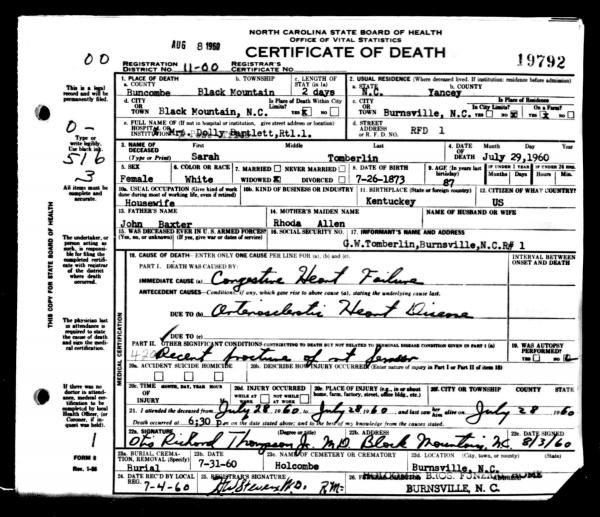 NORTH CAROLINA STATE BOARD OF HEALTH
OFFICE OF VITAL STATISTICS
AUG 8 1960
CERTIFICATE OF DEATH
00
19792
REGISTRATION DISTRICT NO. 11-00 REGISTRAR'S CERTIFICATE NO.
This is a legal record and will be permanently filed.
1. PLACE OF DEATH a. COUNTY b. TOWNSHIP c. LENGTH OF STAY (in 1a) 2. USUAL RESIDENCE (Where deceased lived. If institution: residence before admission) a. STATE b. COUNTY
Buncombe Black Mountain 2 days N.C. Yancey
d. CITY OR TOWN Black Mountain, N.C. Is Place of Death Within City Limits? YES X NO c. CITY OR TOWN Burnsville, N.C. Is Place of Residence In City Limits? On a Farm? YES NO YES NO
0-
Type or write legibly. Use black ink.
516
3
FULL NAME OF (If not in hospital or institution, give street address or location) HOSPITAL OR INSTITUTION Mrs. Dolly Bartlett, Rt1.1. d. STREET ADDRESS OR R. F. D. NO. RFD 1
3. NAME OF DECEASED (Type or Print) First Middle Last 4. DATE OF DEATH Month Day Year
Sarah Tomberlin July 29,1960
5. SEX 6. COLOR OR RACE 7. MARRIED NEVER MARRIED WIDOWED X DIVORCED 8. DATE OF BIRTH 9. AGE (In years last birthday) IF UNDER 1 YEAR Months Days IF UNDER 24 HRS. Hours Min.
Female White 7-26-1873 87
All items must be complete and accurate.
10a. USUAL OCCUPATION (Give kind of work done during most of working life, even if retired) 10b. KIND OF BUSINESS OR INDUSTRY 11. BIRTHPLACE (State or foreign country) 12. CITIZEN OF WHAT COUNTRY?
Housewife Kentuckey US
13. FATHER'S NAME 14. MOTHER'S MAIDEN NAME NAME OF HUSBAND OR WIFE
John Baxter Rhoda Allen
15. WAS DECEASED EVER IN U.S. ARMED FORCES? (Yes, no, or unknown) (If yes, give war or dates of service) 16. SOCIAL SECURITY NO. 17. INFORMANT'S NAME AND ADDRESS
G.W.Tomberlin,Burnsville,N.C.R# 1
THIS COPY FOR STATE BOARD OF HEALTH
The undertaker, or person acting as such, is responsible for filing the completed certificate with registrar of the district where death occurred.
MEDICAL CERTIFICATION
18. CAUSE OF DEATH—ENTER ONLY ONE CAUSE PER LINE FOR (a), (b) and (c). INTERVAL BETWEEN ONSET AND DEATH
PART I. DEATH WAS CAUSED BY:
IMMEDIATE CAUSE (a) Congestive Heart Failure
ANTECEDENT CAUSES—Conditions, if any, which gave rise to above cause (a), stating the underlying cause last.
DUE TO (b) Arteriosclerotic Heart Disease
DUE TO (c)
The physician last in attendance is required to state the cause of death and sign the medical certification.
PART II. OTHER SIGNIFICANT CONDITIONS CONTRIBUTING TO DEATH BUT NOT RELATED TO TERMINAL DISEASE CONDITION GIVEN IN PART I (a) 19. WAS AUTOPSY PERFORMED? YES NO
Recent fracture of rt femur
20a. ACCIDENT SUICIDE HOMICIDE 20b. DESCRIBE HOW INJURY OCCURRED (Enter nature of injury in Part I or Part II of item 18)
If there was no doctor in attendance, medical certification to be completed by local Health Officer, (or Coroner, if inquest was held).
1
20c. TIME OF INJURY HOUR MONTH, DAY, YEAR 20d. INJURY OCCURRED WHILE AT WORK NOT WHILE AT WORK 20e. PLACE OF INJURY (e.g., in or about home, farm, factory, street, office bldg., etc.) 20f. CITY OR TOWNSHIP COUNTY STATE
21. I attended the deceased from July 28 1960 to July 28 1960 and last saw her alive on July 28 1960
Death occurred at 6:30 p.m. on the date stated above; and to the best of my knowledge from the causes stated.
22a. SIGNATURE (Degree or title) 22b. ADDRESS 22c. DATE SIGNED
Otis Richard Thompson Jr. M.D. Black Mountain, N.C. 8/3/60
23a. BURIAL, CREMATION, REMOVAL (Specify) 23b. DATE 23c. NAME OF CEMETERY OR CREMATORY 23d. LOCATION (City, town, or county) (State)
Burial 7-31-60 Holcombe Burnsville, N.C.
FORM 8
Rev. 1-56
24. DATE REC'D BY LOCAL REG. 25. REGISTRAR'S SIGNATURE 26. FUNERAL DIRECTOR ADDRESS
7-4-60 HOLCOMBE BROS. FUNERAL HOME
BURNSVILLE, N. C.